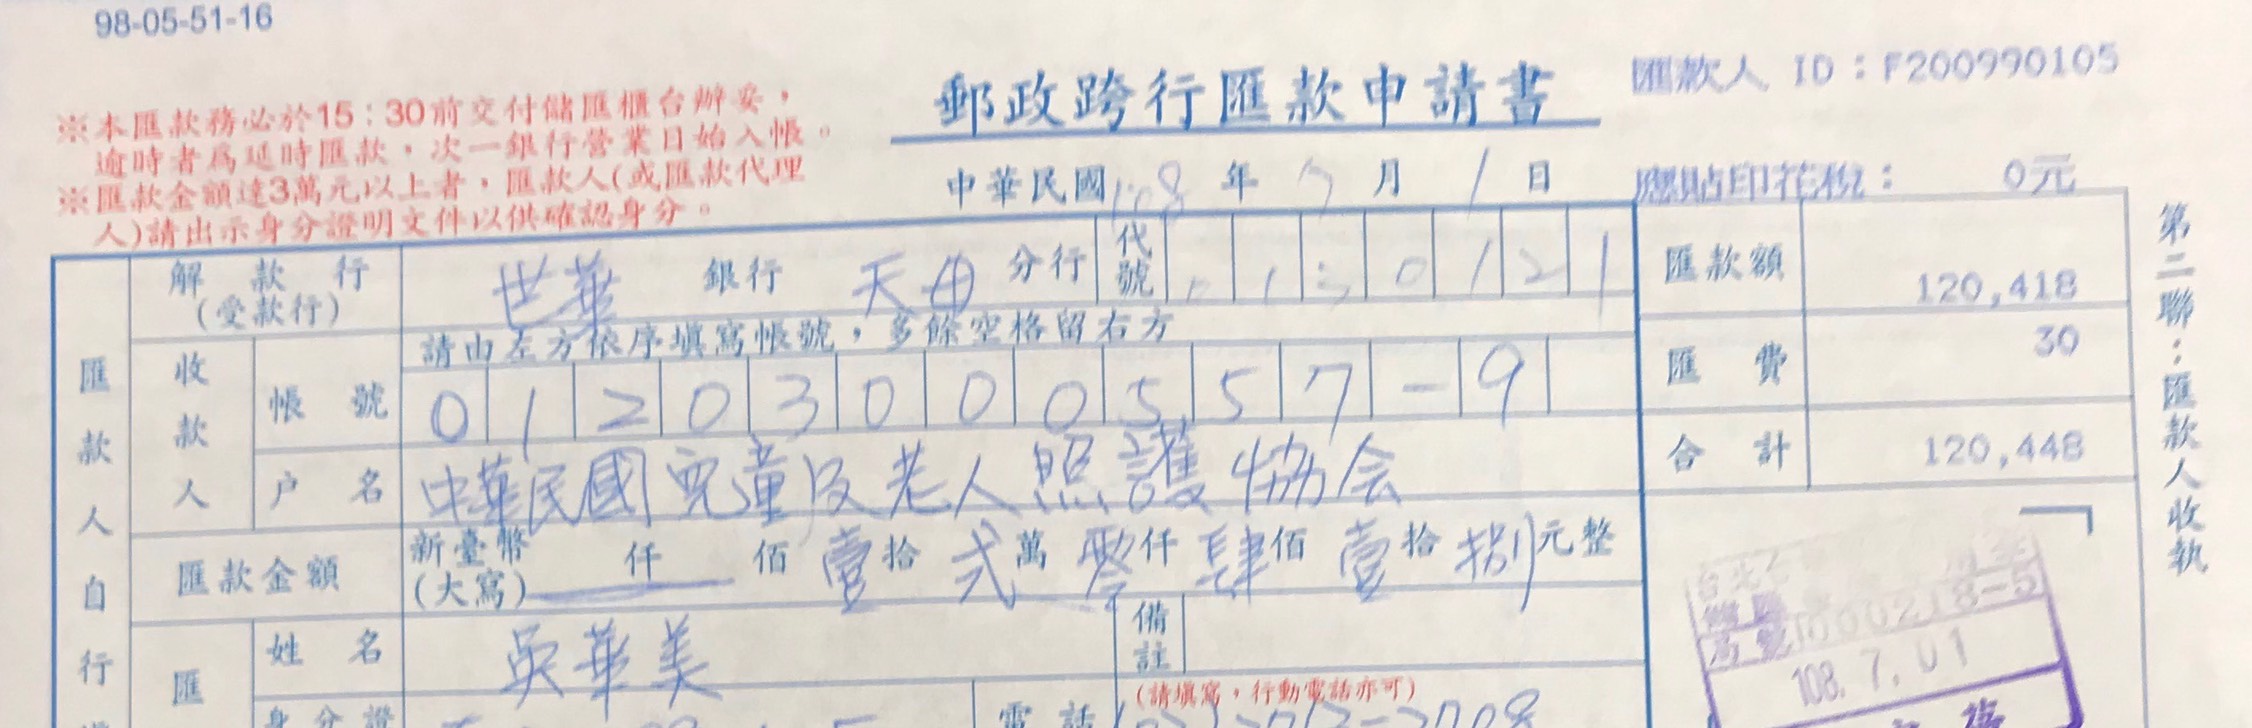 98-05-51-16
郵政跨行匯款申請書
匯款人 ID：F200990105
※本匯款務必於15：30前交付儲匯櫃台辦妥，
逾時者為延時匯款，次一銀行營業日始入帳。
※匯款金額達3萬元以上者，匯款人(或匯款代理
人)請出示身分證明文件以供確認身分。
中華民國 108 年 7 月 1 日
應貼印花稅： 0元
解款行 (受款行) 世華 銀行 天母 分行 代號 0130121
匯款額 120,418
請由左方依序填寫帳號，多餘空格留右方
收款人 帳號 01203000557-9
匯費 30
戶名 中華民國兒童及老人照護協会
合計 120,448
匯款金額 新臺幣 (大寫) 仟 佰 壹拾 弍萬 零仟 肆佰 壹拾 捌元整
匯 姓名 吳華美 備註
身分證 電話 (請填寫，行動電話亦可)
匯款人自行
第二聯：匯款人收執
台北
000218-5
108.7.01